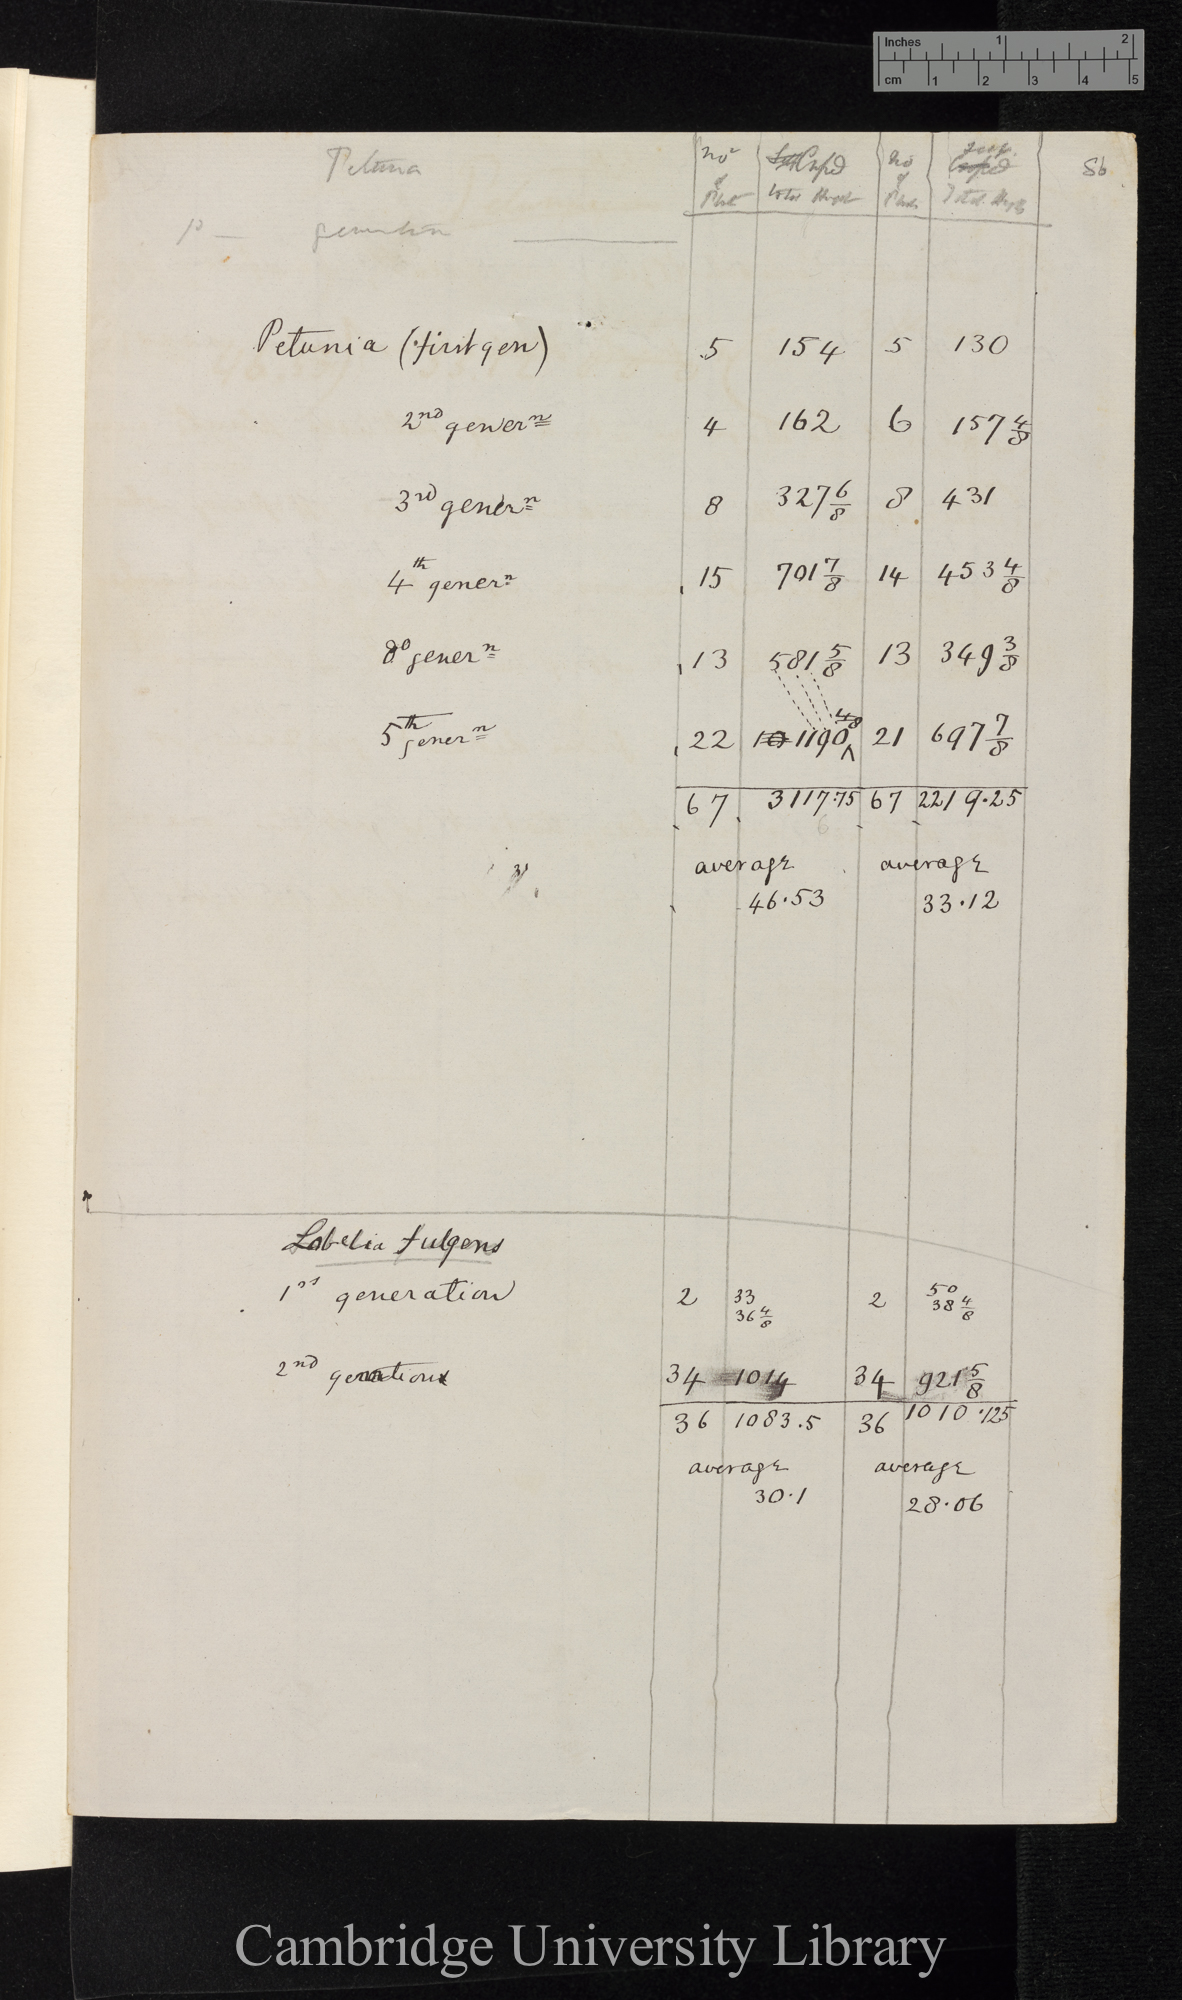 Inches 1 2
cm 1 2 3 4 5
Petunia
no of Plant Crossd total Height no of Plants Self. Crossed Total. Height
86
p — generation
Petunia (first gen) 5 154 5 130
2nd genern 4 162 6 157 4/8
3rd genern 8 327 6/8 8 431
4th genern 15 701 7/8 14 453 4/8
do genern 13 581 5/8 13 349 3/8
5th genern 22 10 1190 4/8 21 697 7/8
67 3117.75 67 2219.25
6
average average
46.53 33.12
Lobelia fulgens
1st generation 2 33 2 50
36 4/8 38 4/8
2nd generation 34 1014 34 921 5/8
36 1083.5 36 1010.125
average average
30.1 28.06
Cambridge University Library